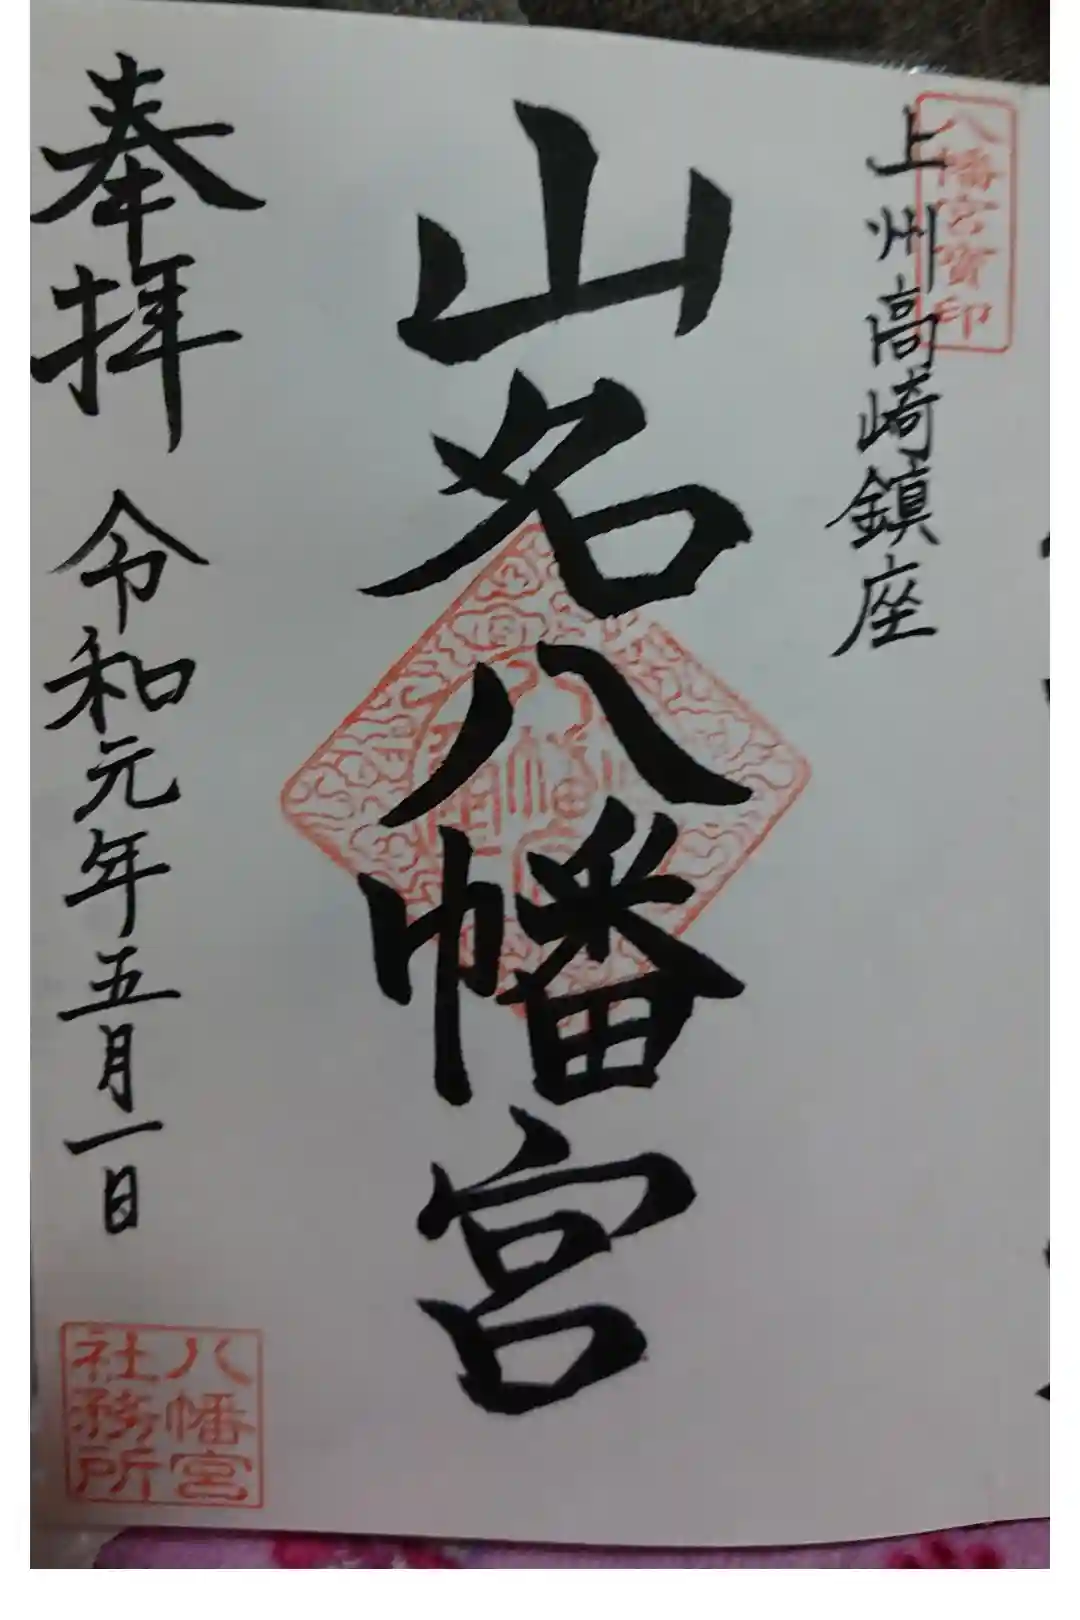 八幡宮寳印
上州高崎鎮座
山名八幡宮
奉拝 令和元年五月一日
八幡宮
社務所